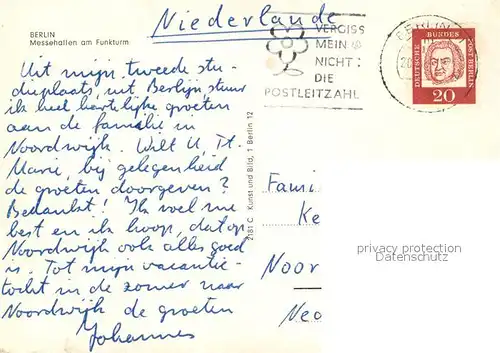 Niederlande
BERLIN
Messehallen am Funkturm
VERGISS
MEIN
NICHT:
DIE
POSTLEITZAHL
BERLIN
DEUTSCHE BUNDESPOST BERLIN
20
Uit mijn tweede stu-
dieplaats, uit Berlijn, stuur
ik heel hartelijke groeten
aan de familie in
Noordwijk. Wilt U, Tt.
Marie, bij gelegenheid
de groeten doorgeven?
Bedankt! Ik voel me
best en ik hoop, dat op
Noordwijk ook alles goed
is. Tot mijn vacantie-
tocht in de zomer naar
Noordwijk de groeten
Johannes
2181 C Kunst und Bild, 1 Berlin 12
Fami
Ke
Noor
Neo
privacy protection
Datenschutz